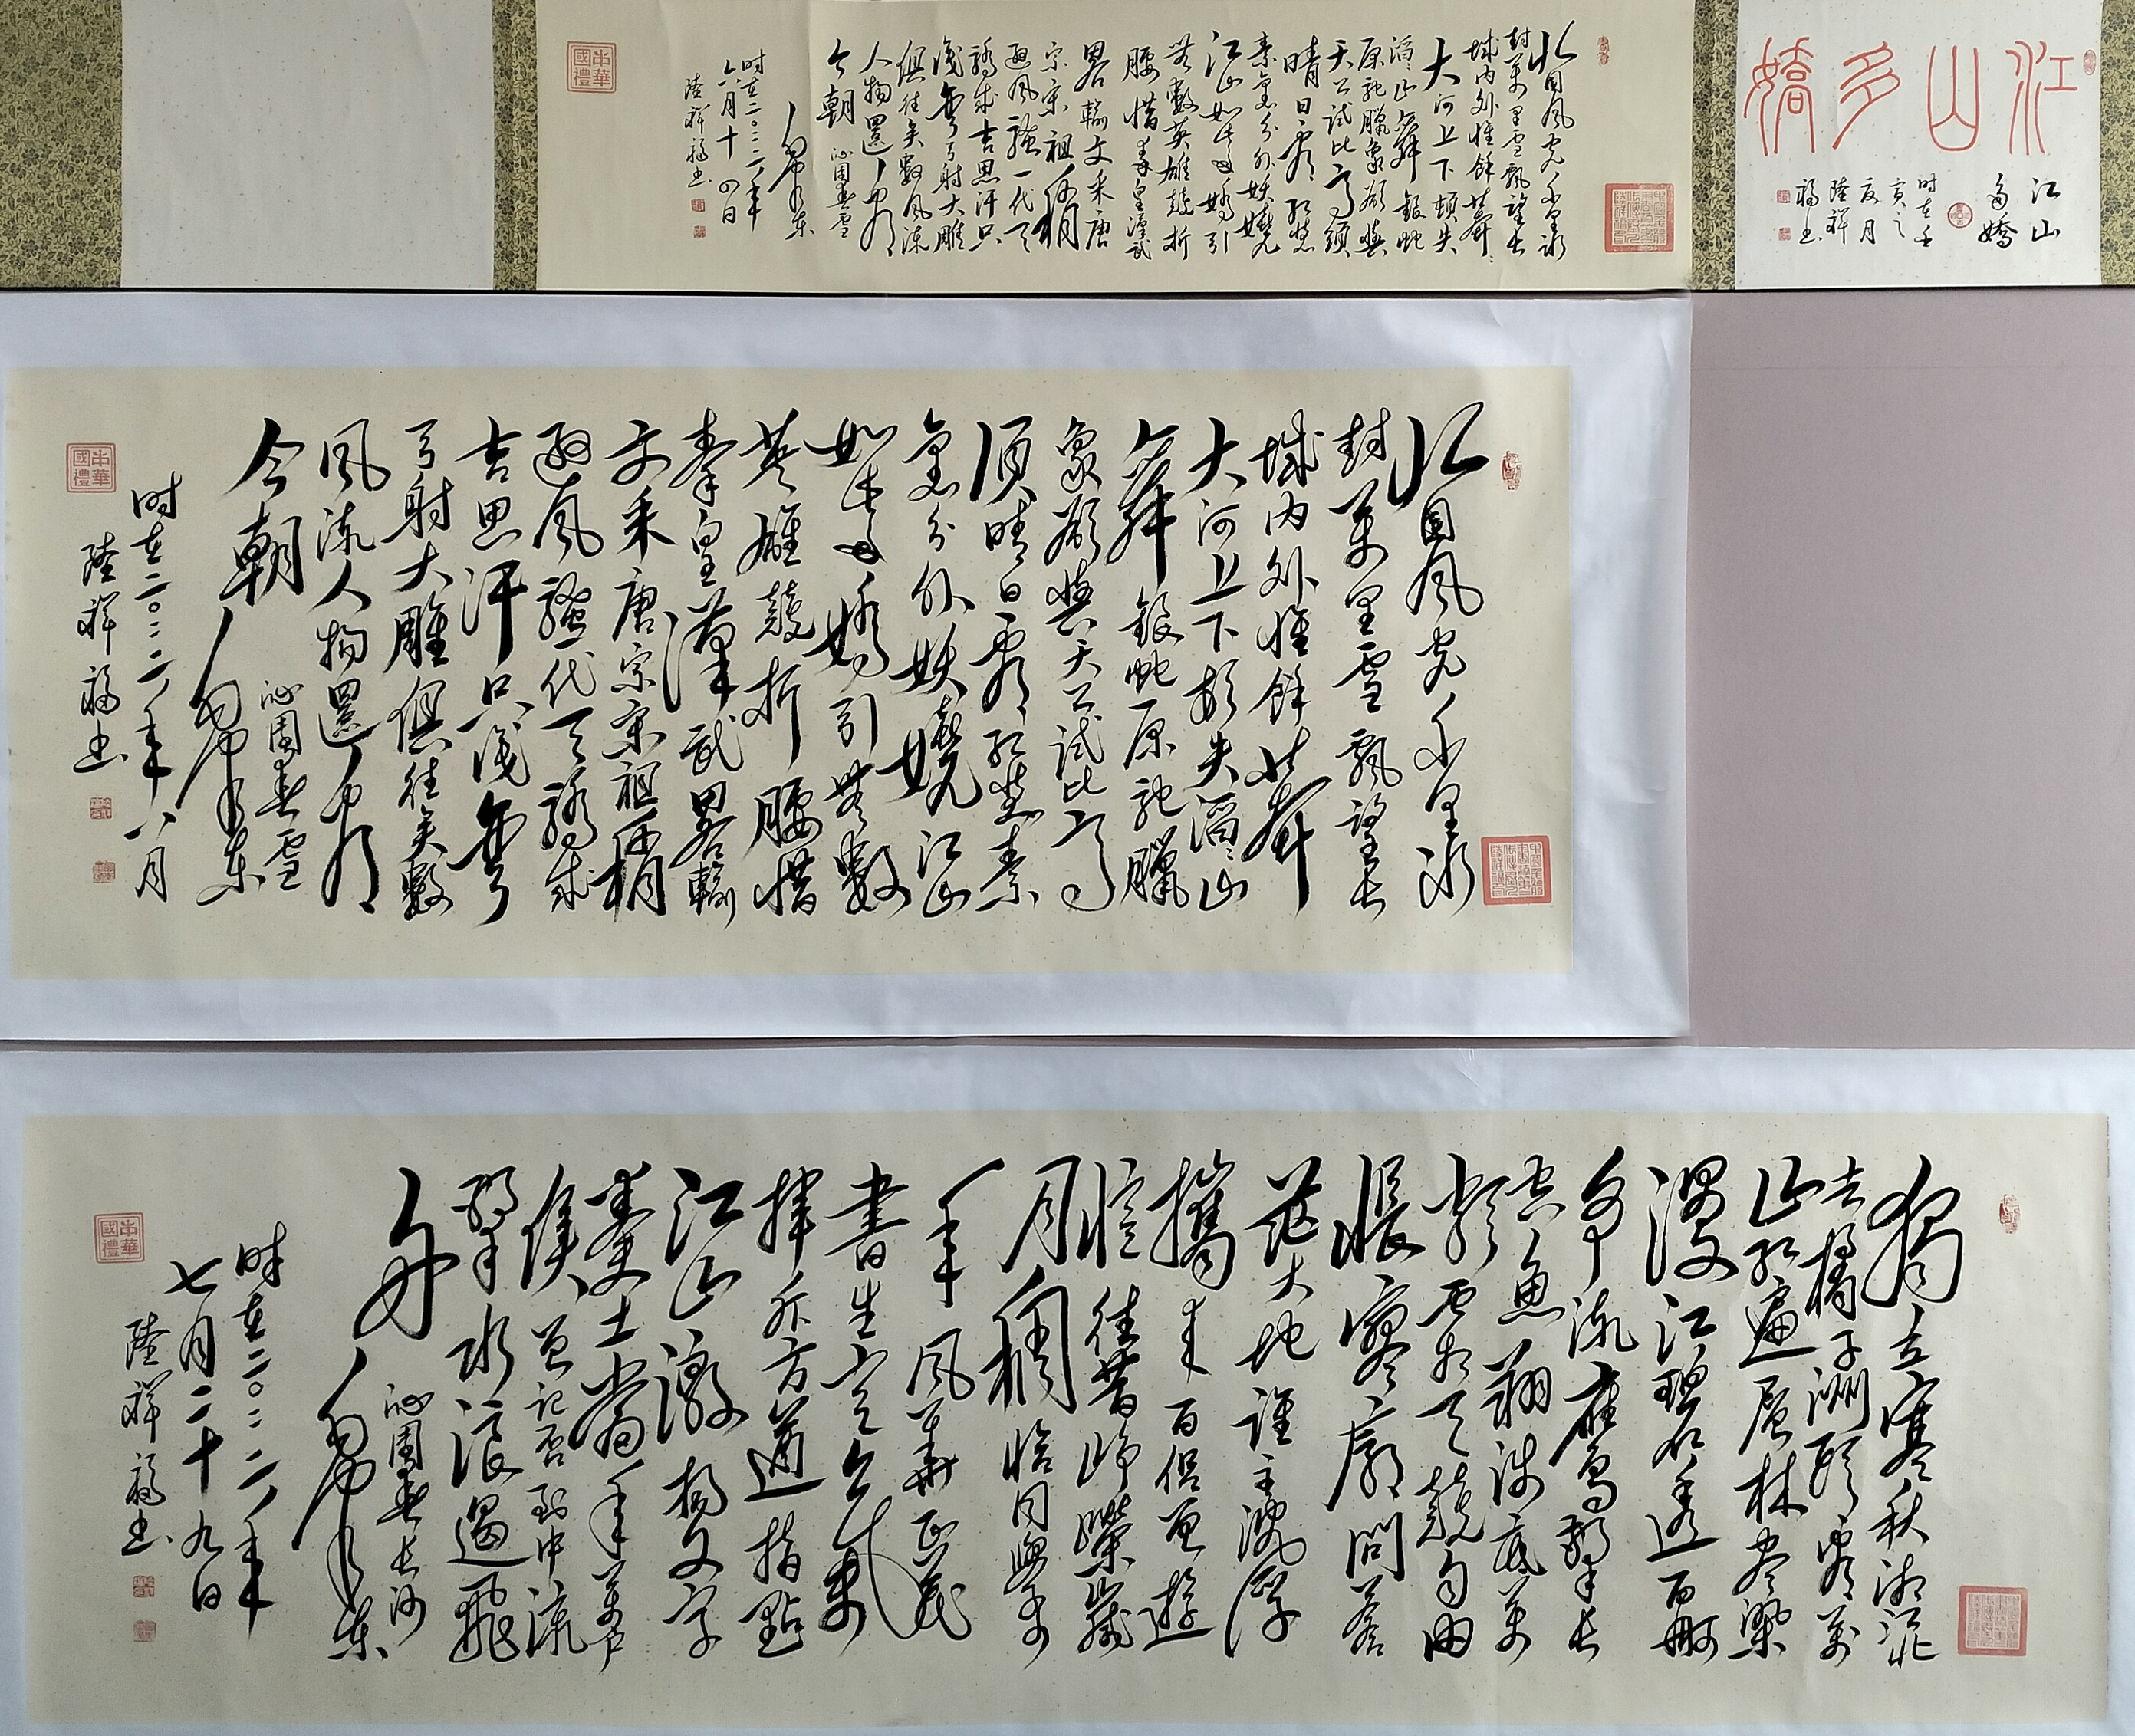 江山多嬌
江山
多嬌
时在壬
寅之
夏月
陸祥
福书
北国风光千里冰
封萬里雪飘望长
城内外惟餘莽々
大河上下顿失
滔々山舞銀蛇
原驰臘象欲與
天公试比高須
晴日看红装
素裹分外妖嬈
江山如此多娇引
無數英雄競折
腰惜秦皇漢武
畧輸文采唐
宗宋祖稍
遜风騷一代天
骄成吉思汗只
識彎弓射大雕
俱往矣數风流
人物還看
今朝 沁园春雪
毛泽东
时在二〇二二年
六月十四日
陸祥福书
中華國禮
北国风光千里冰
封萬里雪飘望长
城内外惟餘莽
大河上下顿失滔々山
舞銀蛇原驰臘
象欲與天公试比高
須晴日看红装素
裹分外妖嬈江山
如此多娇引無數
英雄競折腰惜
秦皇漢武畧輸
文采唐宗宋祖稍
遜风騷一代天骄成
吉思汗只識彎
弓射大雕俱往矣數
风流人物還看
今朝 沁园春雪
毛泽东
时在二〇二二年八月
陸祥福书
中華國禮
獨立寒秋湘江北
去橘子洲头看萬
山红遍层林尽染
漫江碧透百舸
争流鹰击长
空魚翔浅底萬
类霜天競自由
悵寥廓問蒼
茫大地谁主沉浮
攜来百侣曾遊
憶往昔峥嵘歲
月稠恰同學少
年风華正茂
書生意气
揮斥方遒指點
江山激揚文字
糞土當年萬户
侯曾记否到中流
击水浪遏飛
舟 沁园春长沙
毛泽东
时在二〇二二年
七月二十九日
陸祥福书
中華國禮